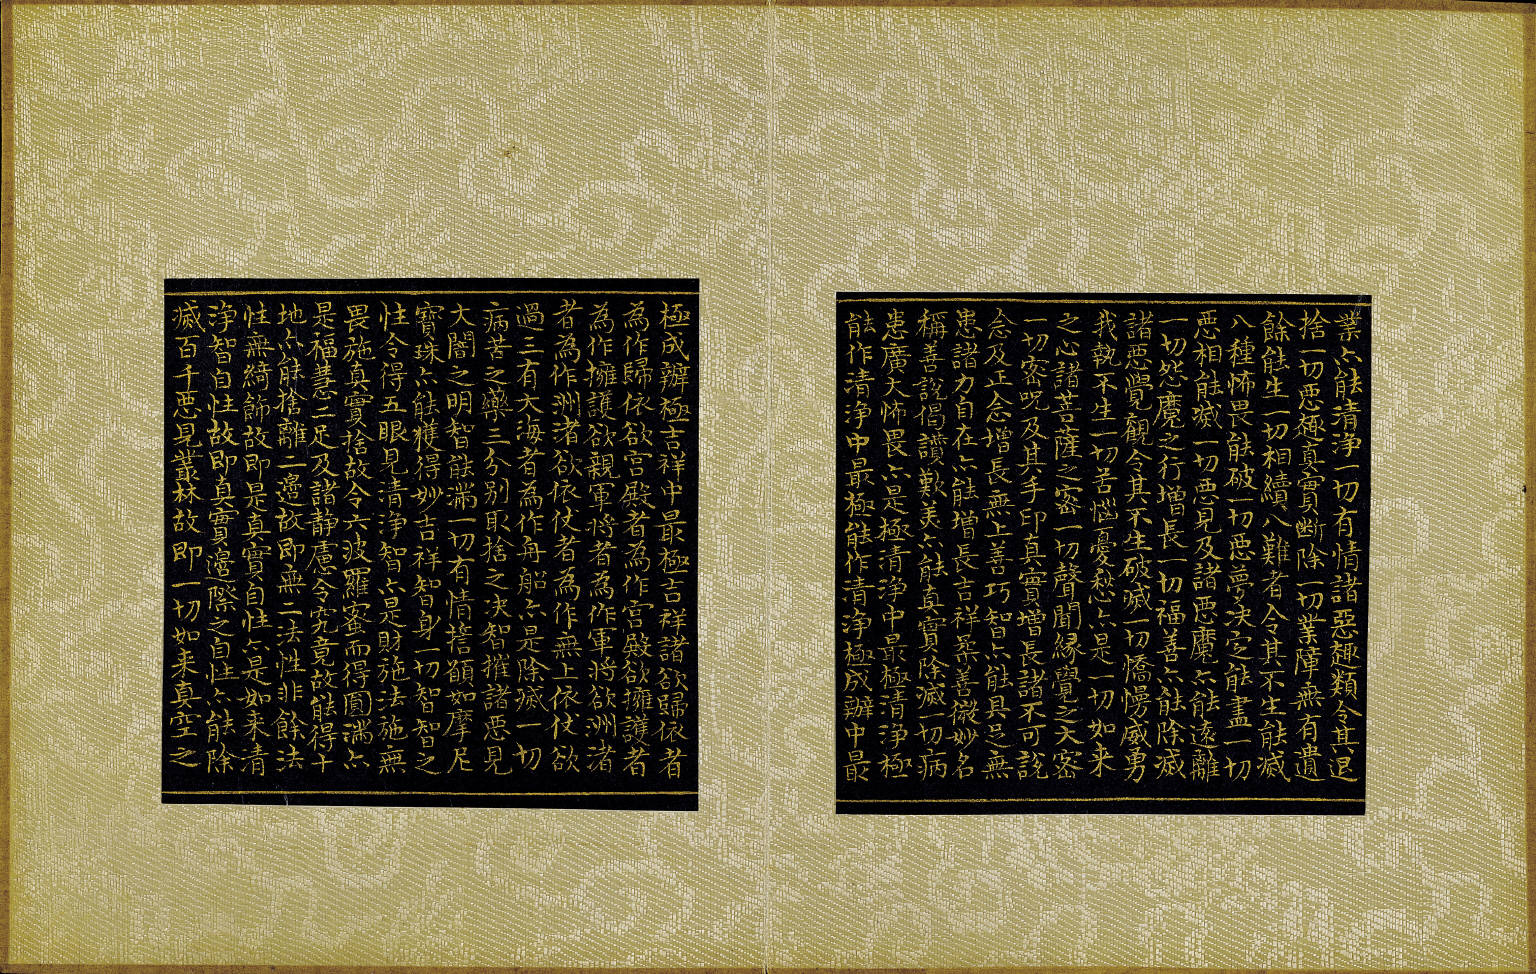 業亦能清淨一切有情諸惡趣類令其退
捨一切惡趣真實斷除一切業障無有遺
餘能生一切相續八難者令其不生能滅
八種怖畏能破一切惡夢決定能盡一切
惡相能滅一切惡見及諸惡魔亦能遠離
一切怨魔之行增長一切福善亦能除滅
諸惡覺觀令其不生破滅一切憍慢威勇
我執不生一切苦惱憂愁亦是一切如来
之心諸菩薩之密一切聲聞緣覺之大密
一切密咒及其手印真實增長諸不可說
念及正念增長無上善巧智亦能具足無
患諸力自在亦能增長吉祥柔善微妙名
稱善說偈讚歎美亦能真實除滅一切病
患廣大怖畏亦是極清淨中最極清淨極
能作清淨中最極能作清淨極成辦中最
極成辦極吉祥中最極吉祥諸欲歸依者
為作歸依欲宮殿者為作宮殿欲擁護者
為作擁護欲親軍將者為作軍將欲洲渚
者為作洲渚欲依仗者為作無上依仗欲
過三有大海者為作舟船亦是除滅一切
病苦之藥三分別取捨之決智摧諸惡見
大闇之明智能滿一切有情搘願如摩尼
寶珠亦能獲得妙吉祥智身一切智智之
性令得五眼見清淨智亦是財施法施無
畏施真實捨故令六波羅密而得圓滿亦
是福慧二足及諸靜慮令究竟故能得十
地亦能捨離二邊故即無二法性非餘法
性無綺飾故即是真實自性亦是如来清
淨智自性故即真實邊際之自性亦能除
滅百千惡見叢林故即一切如来真空之